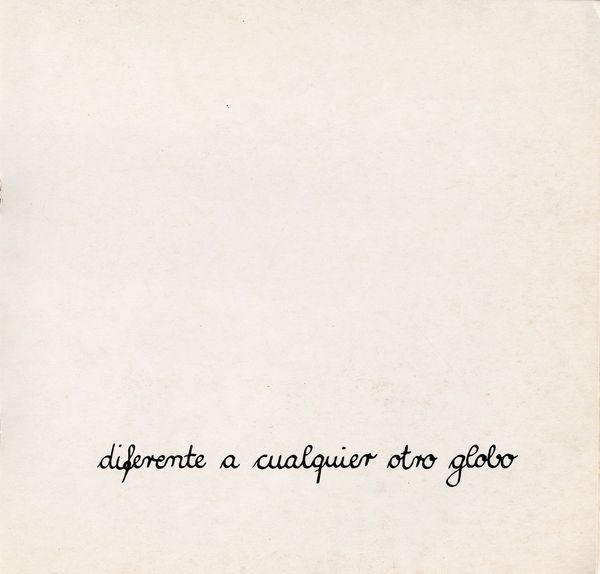 diferente a cualquier otro globo